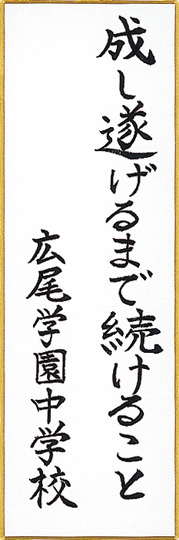 成し遂げるまで続けること
広尾学園中学校